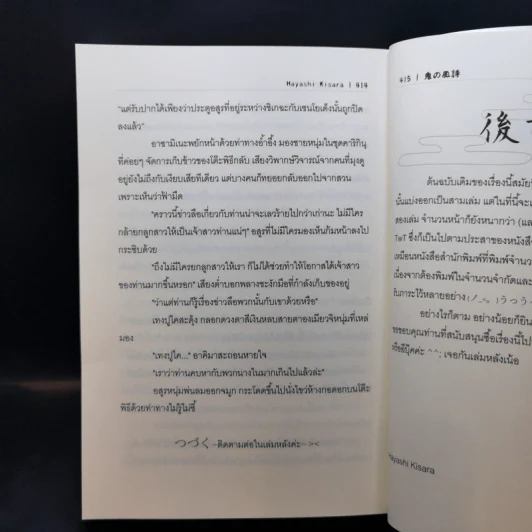 Hayashi Kisara | 414
"แต่รับปากได้เพียงว่าประตูอสูรที่อยู่ระหว่างชิเกะกับเซนโยเด็งนั้นถูกปิด
ลงแล้ว"
อาซามิเนะพยักหน้าด้วยท่าทางอ้ำอึ้ง มองชายหนุ่มในชุดคาริกินุ
ที่ค่อยๆ จัดการเก็บข้าวของโต๊ะพิธีกลับ เสียงวิพากษ์วิจารณ์จากคนที่มุงดู
อยู่ยังไม่ถึงกับเงียบเสียทีเดียว แต่บางคนก็ทยอยกลับออกไปจากสวน
เพราะเห็นว่าฟ้ามืด
"คราวนี้ข่าวลือเกี่ยวกับท่านน่าจะเลวร้ายไปกว่าเก่านะ ไม่มีใคร
กล้ายกลูกสาวให้เป็นเจ้าสาวท่านแน่ๆ" อสูรที่ไม่มีใครมองเห็นก้มหน้าลงไป
กระซิบด้วย
"ถึงไม่มีใครยกลูกสาวให้เรา ก็ไม่ได้ช่วยทำให้โอกาสได้เจ้าสาว
ของท่านมากขึ้นหรอก" เสียงต่ำบอกพลางชะงักมือที่กำลังเก็บของอยู่
"ว่าแต่ท่านก็รู้เรื่องข่าวลือพวกนั้นกับเขาด้วยหรือ"
เทงปูโคสะดุ้ง กลอกดวงตาสีเงินหลบสายตาองเมียวจิหนุ่มที่เหล่
มอง
"เทงปูโค..." อาคิมาสะถอนหายใจ
"เราว่าท่านคบหากับพวกนางในมากเกินไปแล้วล่ะ"
อสูรหนุ่มพ่นลมออกจมูก กระโดดขึ้นไปนั่งไขว่ห้างกอดอกบนโต๊ะ
พิธีด้วยท่าทางไม่รู้ไม่ชี้
つづく -ติดตามต่อในเล่มหลังค่ะ-><
415 | 鬼の風詩
後
ต้นฉบับเดิมของเรื่องนี้สมัย
นั้นแบ่งออกเป็นสามเล่ม แต่ในที่นี้จะ
สองเล่ม จำนวนหน้าก็ยังหนากว่า (แ
TwT ซึ่งก็เป็นไปตามประสาของหนังสือ
เหมือนหนังสือสำนักพิมพ์ที่พิมพ์จำนวน
เนื่องจากต้องพิมพ์ในจำนวนจำกัดและ
อย่างไรก็ตาม อย่างน้อยก็ยิน
ขอบคุณท่านที่สนับสนุนซื้อเรื่องนี้ไป
^^; เจอกันเล่มหลังเน้อ
Hayashi Kisara